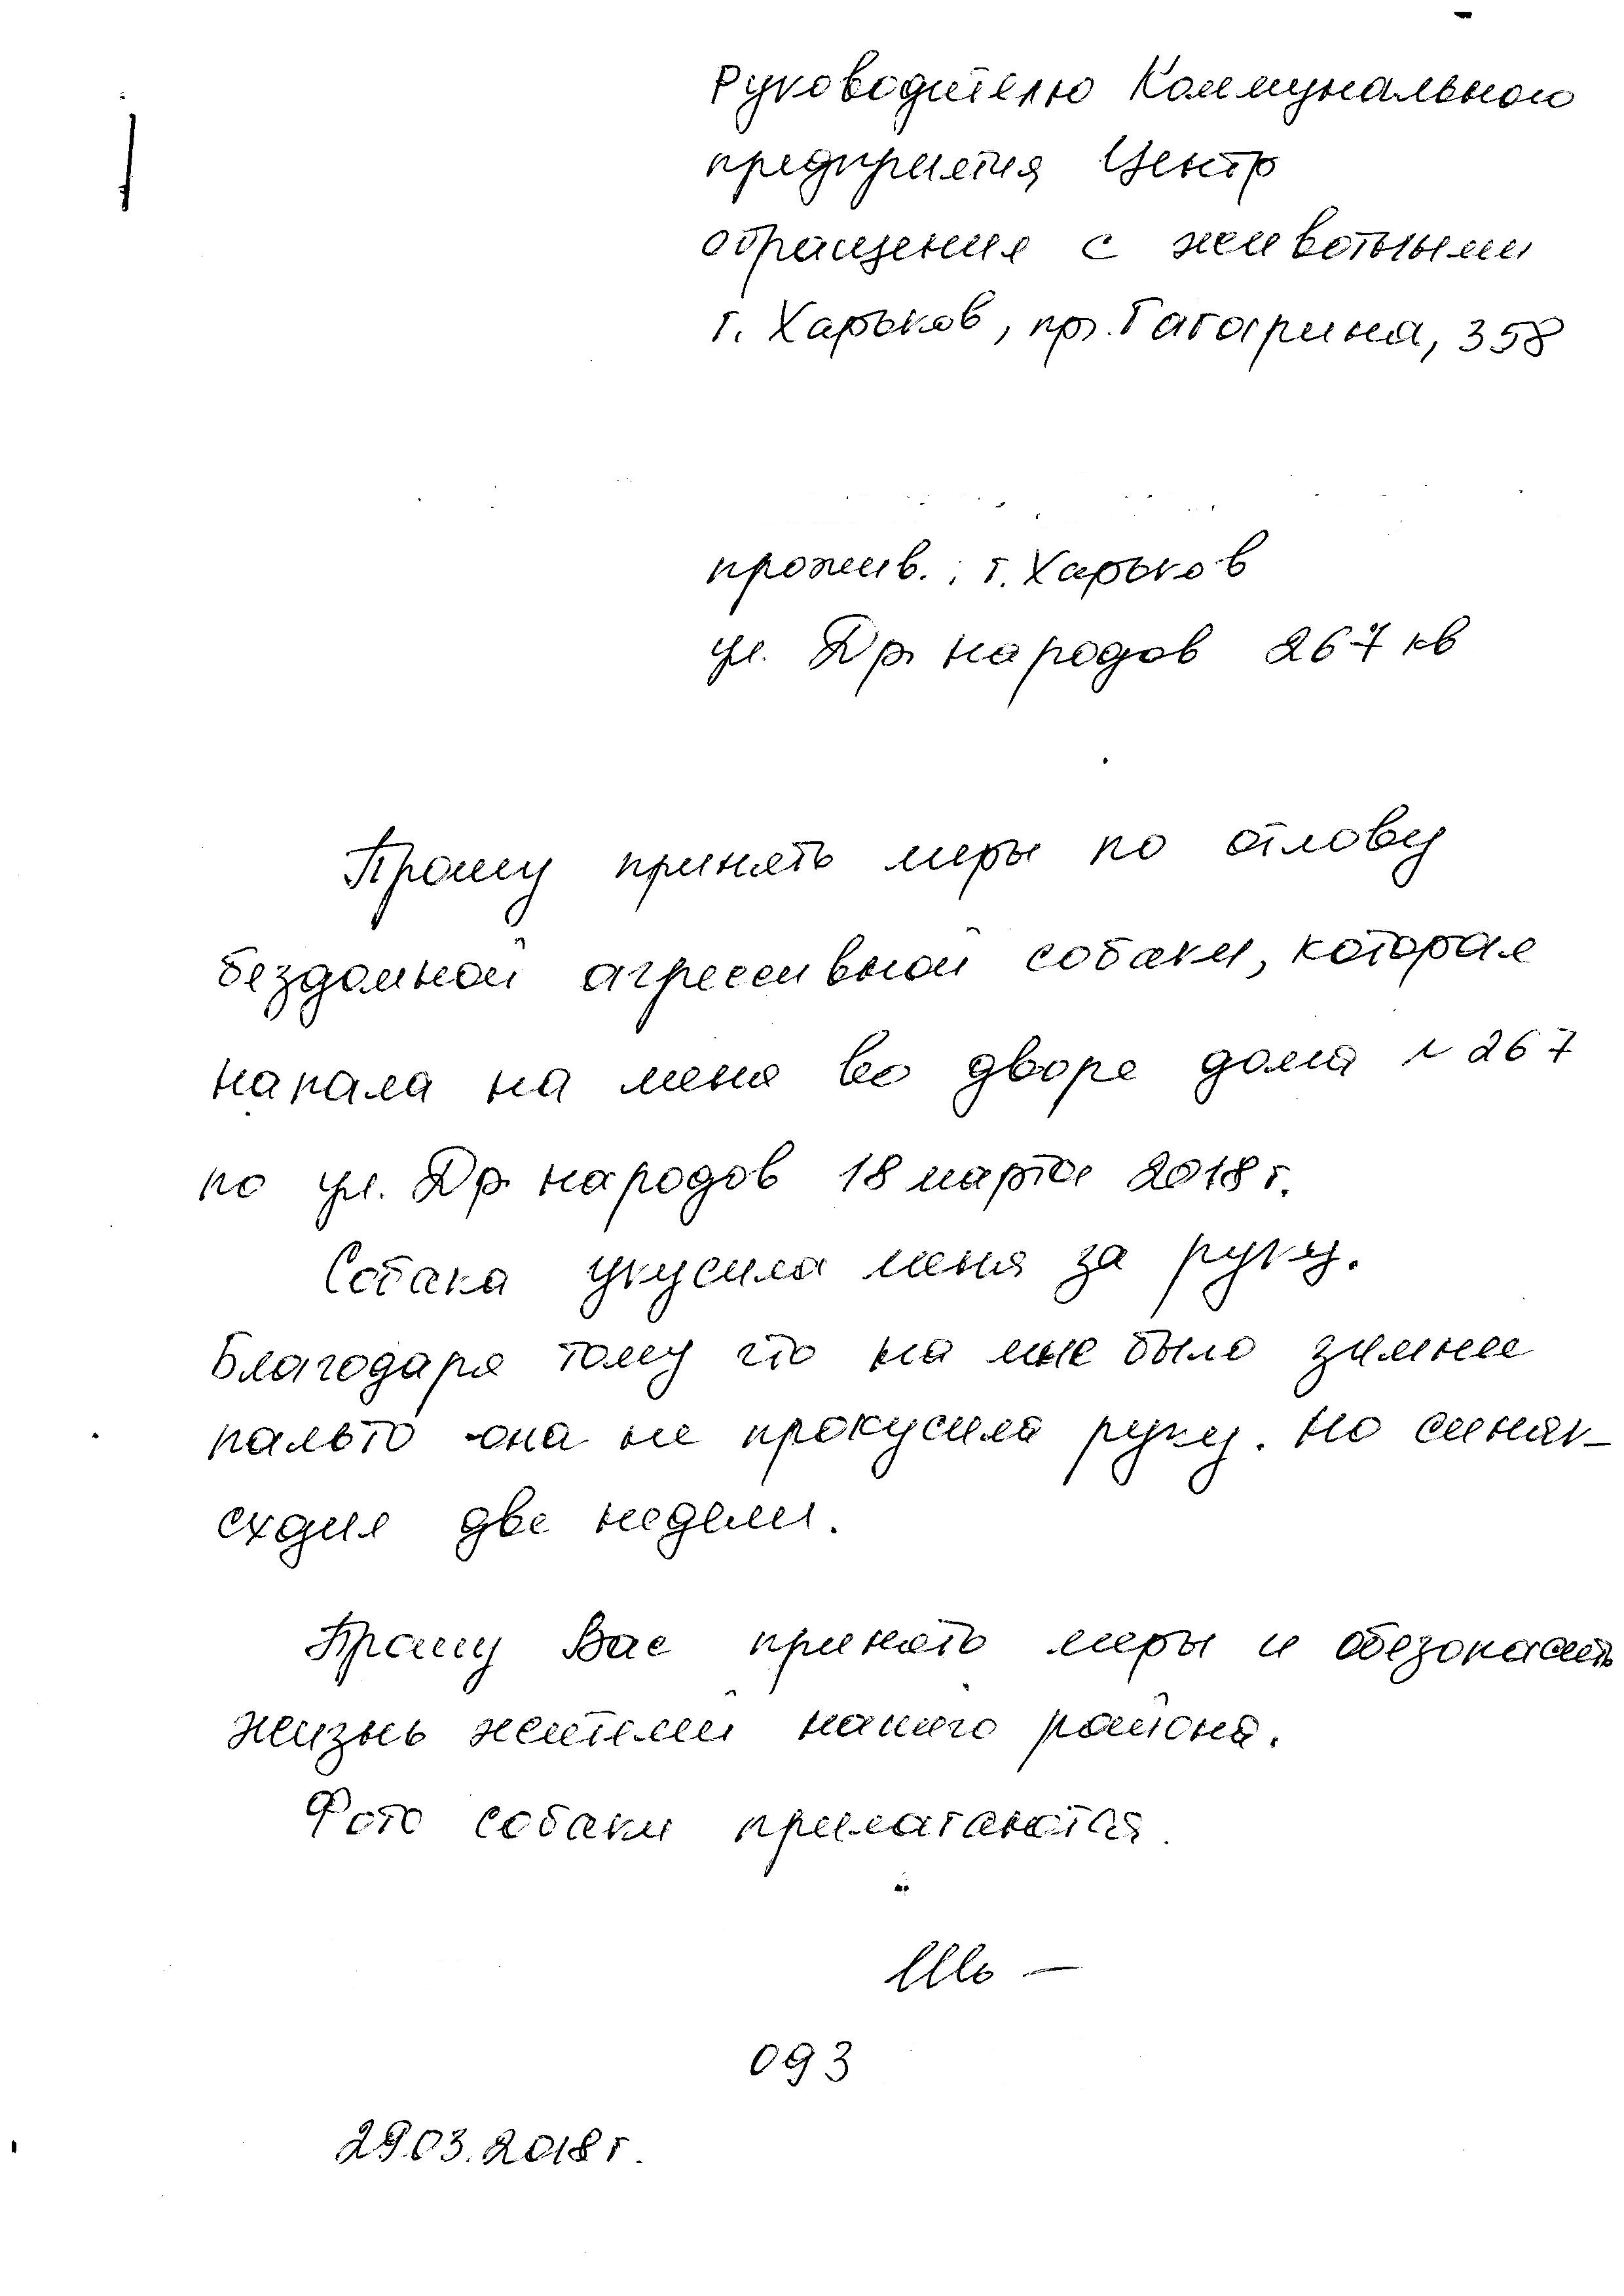 Руководителю Коммунального
предприятия Центр
обращения с животными
г. Харьков, пр. Гагарина, 358
прожив.: г. Харьков
ул. Др. народов 267 кв
Прошу принять меры по отлову
бездомной агрессивной собаки, которая
напала на меня во дворе дома № 267
по ул. Др. народов 18 марта 2018 г.
Собака укусила меня за руку.
Благодаря тому что на мне было зимнее
пальто она не прокусила руку. Но синяк
сходил две недели.
Прошу Вас принять меры и обезопасить
жизнь жителей нашего района.
Фото собаки прилагаются.
093
29.03.2018 г.